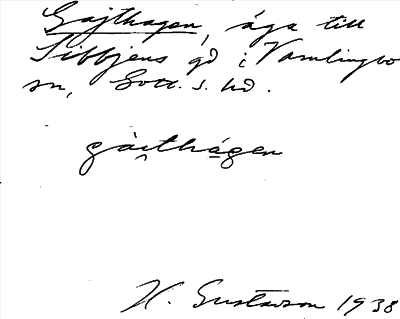 Gajthagen, äga till
Sibbjens gd i Vamlingbo
sn, Gotl. s. hd.
gài̯thágen
H. Gustavson 1938